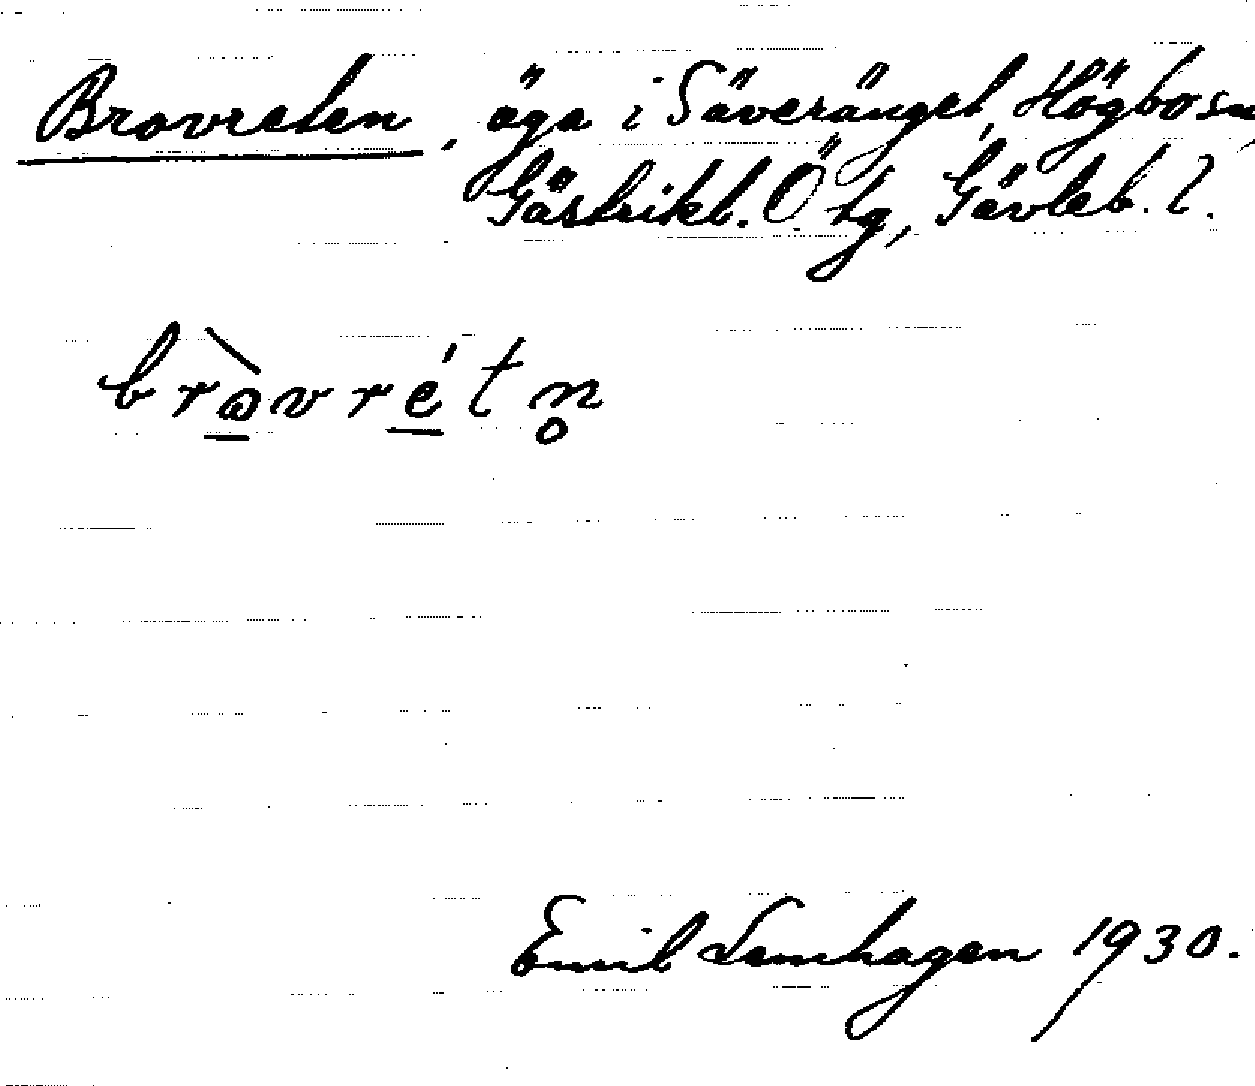 Brovreten, äga i Säveränget, Högbo sn,
Gästrikl. Ö tg, Gävleb. l.
bròvrétn̥
Emil Lemhagen 1930.